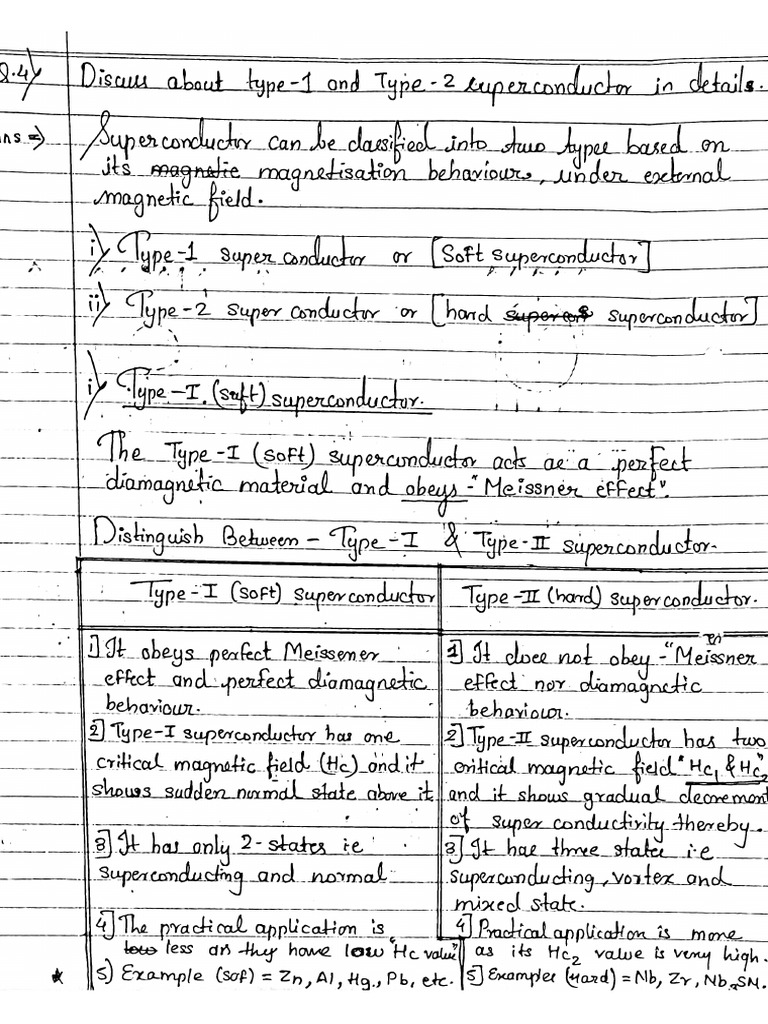 Q.4) Discuss about type-1 and Type-2 superconductor in details.
Ans ⇒ Superconductor can be classified into two types based on
its magnetic magnetisation behaviour, under external
magnetic field.
i) Type-1 super conductor or [Soft superconductor]
ii) Type-2 super conductor or [hard superconductor]
i) Type-I (soft) superconductor.
The Type-I (soft) superconductor acts as a perfect
diamagnetic material and obeys "Meissner effect".
Distinguish Between - Type-I & Type-II superconductor.
Type-I (soft) superconductor
1] It obeys perfect Meissener
effect and perfect diamagnetic
behaviour.
2] Type-I superconductor has one
critical magnetic field (Hc) and it
shows sudden normal state above it
3] It has only 2-states i.e
superconducting and normal
4] The practical application is
low less as they have low "Hc value"
5) Example (sof) = Zn, Al, Hg., Pb, etc.
Type-II (hard) superconductor.
1] It does not obey - "Meissner
effect nor diamagnetic
behaviour.
2] Type-II superconductor has two
critical magnetic field "Hc1 & Hc2"
and it shows gradual decrement
of super conductivity thereby.
3] It has three states i.e
superconducting, vortex and
mixed state.
4] Practical application is more
as its Hc2 value is very high.
5] Examples (Hard) = Nb, Zr, Nb3SN.